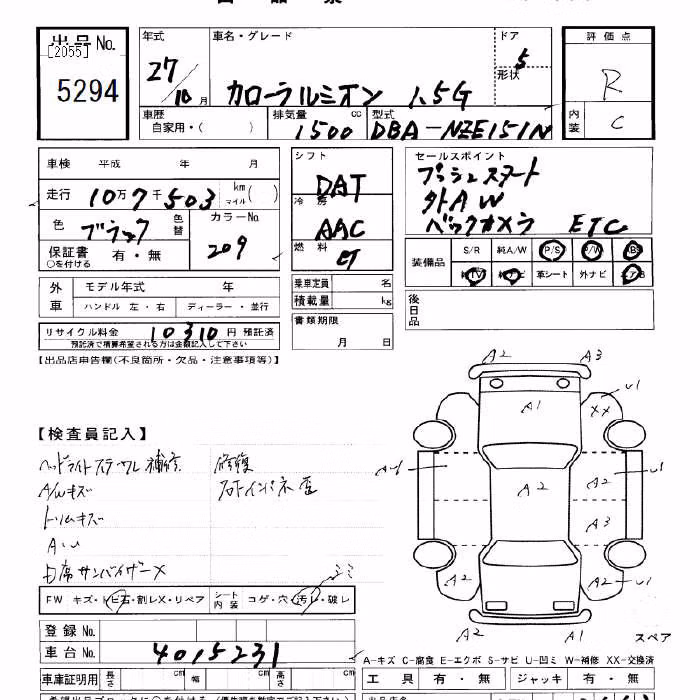 出品No.
[2055]
5294
年式
27
10月
車名・グレード
カローラルミオン 1.5G
ドア
5
形状
車歴
自家用・( )
排気量
1500 cc
型式
DBA-NZE151N
評価点
R
内装
C
車検 平成 年 月
走行 10万7千503 km マイル( )
色 ブラック 色替
カラーNo.
209
保証書 有・無
○を付ける
外車
モデル年式 年
ハンドル 左・右 ディーラー・並行
リサイクル料金 10310円 預託済
預託済で積算希望される方は金額記入して下さい
シフト
DAT
冷房
AAC
燃料
乗車定員 名
積載量 kg
書類期限
月 日
セールスポイント
プッシュスタート
外AW
バックカメラ ETC
装備品
S/R 純A/W P/S P/W ABS
純TV 純ナビ 革シート 外ナビ エアB
後日品
【出品店申告欄(不良箇所・欠品・注意事項等)】
【検査員記入】
ヘッドライトステアリング補修
A/Wキズ
トリムキズ
A・U
日席サンバイザーX
修復
フロトインパネ歪
シミ
FW キズ・トビ石・割レX・リペア
シート内装 コゲ・穴・汚レ・破レ
登録No.
車台No. 4015231
車庫証明用 長さ cm 幅 cm 高さ cm
A2
A3
A1
XX
U1
A2
U1
A2
A3
A2
A2
A2
U1
A2
A1
スペア
A-キズ C-腐食 E-エクボ S-サビ U-凹ミ W-補修 XX-交換済
工具 有・無 ジャッキ 有・無